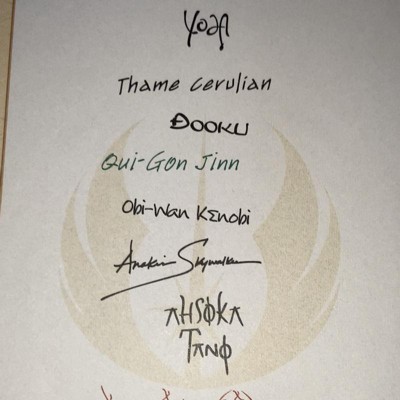 Yoda
Thame Cerulian
Dooku
Qui-Gon Jinn
Obi-Wan Kenobi
Anakin Skywalker
AHSOKA
TANO